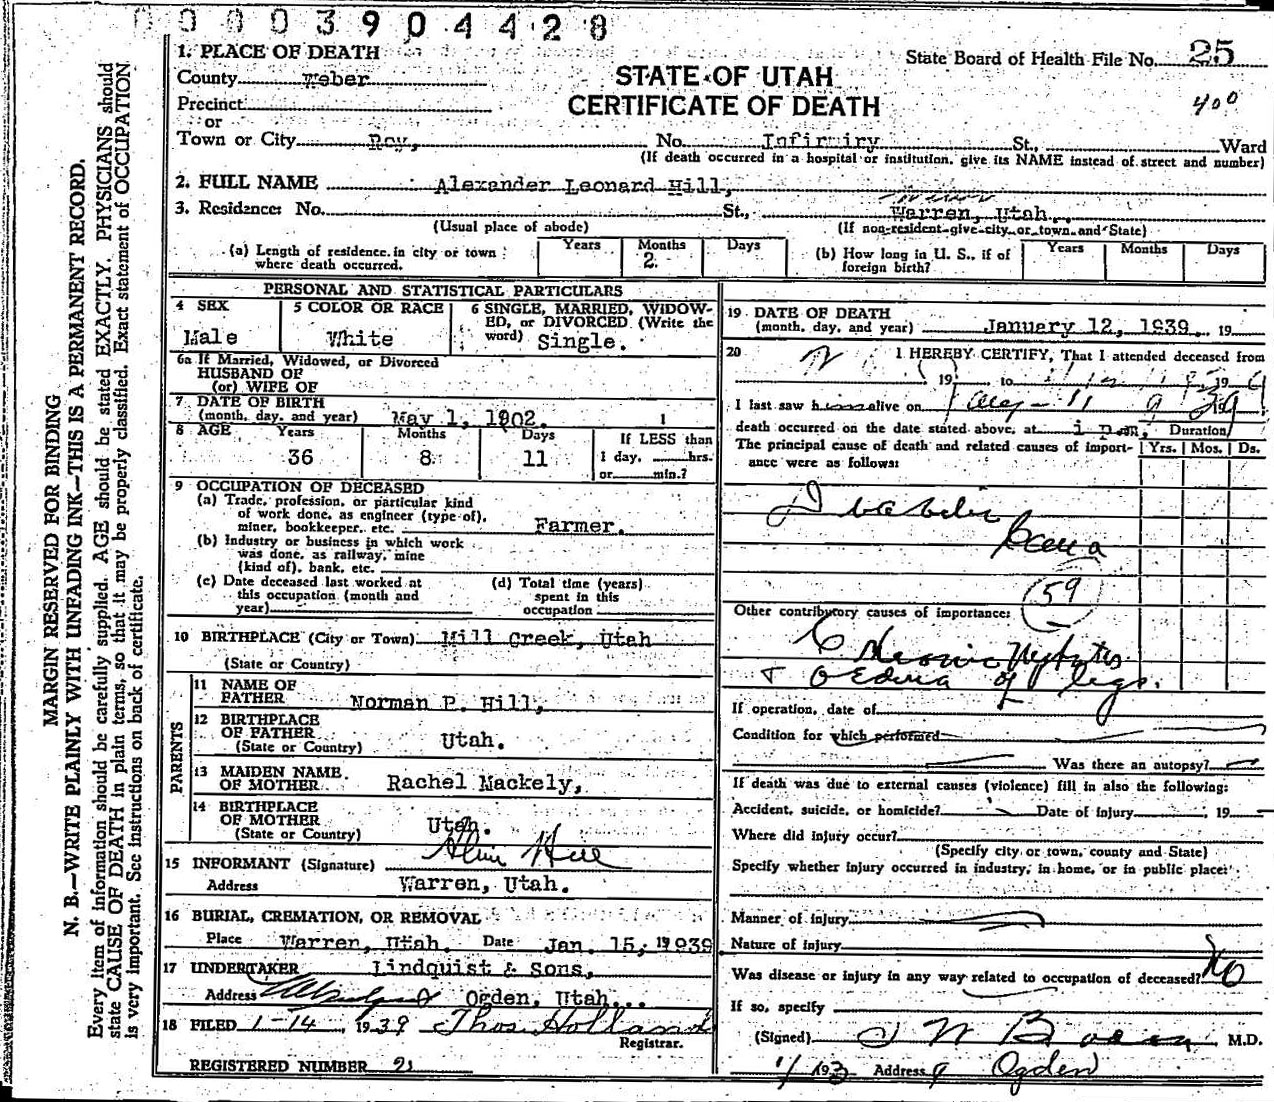 0000390 4428
MARGIN RESERVED FOR BINDING
N. B.—WRITE PLAINLY WITH UNFADING INK—THIS IS A PERMANENT RECORD.
Every item of information should be carefully supplied. AGE should be stated EXACTLY. PHYSICIANS should
state CAUSE OF DEATH in plain terms, so that it may be properly classified. Exact statement of OCCUPATION
is very important. See instructions on back of certificate.
1. PLACE OF DEATH
County Weber
Precinct
or
Town or City Roy,
STATE OF UTAH
CERTIFICATE OF DEATH
State Board of Health File No. 25
400
No. Infirmiry St., Ward
(If death occurred in a hospital or institution, give its NAME instead of street and number)
2. FULL NAME Alexander Leonard Hill,
3. Residence: No. St., Warren, Utah.
(Usual place of abode) (If non-resident give city or town and State)
(a) Length of residence in city or town where death occurred. Years Months 2. Days
(b) How long in U. S., if of foreign birth? Years Months Days
PERSONAL AND STATISTICAL PARTICULARS
4 SEX Male
5 COLOR OR RACE White
6 SINGLE, MARRIED, WIDOWED, or DIVORCED (Write the word) Single.
6a If Married, Widowed, or Divorced
HUSBAND OF
(or) WIFE OF
7 DATE OF BIRTH
(month, day, and year) May 1, 1902. 1
8 AGE Years 36 Months 8 Days 11
If LESS than
1 day, hrs.
or min.?
9 OCCUPATION OF DECEASED
(a) Trade, profession, or particular kind
of work done, as engineer (type of),
miner, bookkeeper, etc. Farmer.
(b) Industry or business in which work
was done, as railway, mine
(kind of), bank, etc.
(c) Date deceased last worked at
this occupation (month and
year)
(d) Total time (years)
spent in this
occupation
10 BIRTHPLACE (City or Town) Mill Creek, Utah
(State or Country)
PARENTS
11 NAME OF
FATHER Norman P. Hill,
12 BIRTHPLACE
OF FATHER
(State or Country) Utah.
13 MAIDEN NAME
OF MOTHER Rachel Mackely,
14 BIRTHPLACE
OF MOTHER
(State or Country) Utah.
15 INFORMANT (Signature) Hill
Address Warren, Utah.
16 BURIAL, CREMATION, OR REMOVAL
Place Warren, Utah. Date Jan. 15, 1939
17 UNDERTAKER Lindquist & Sons,
Address Ogden, Utah...
18 FILED 1-14, 1939 Thos Holland
Registrar.
REGISTERED NUMBER 2
19 DATE OF DEATH
(month, day, and year) January 12, 1939. , 19
20 I HEREBY CERTIFY, That I attended deceased from
, 19 to 19
I last saw him alive on
death occurred on the date stated above, at 1 p m. Duration
The principal cause of death and related causes of importance were as follows: Yrs. Mos. Ds.
Diabetic
Coma
59
Other contributory causes of importance:
Chronic Nephritis
+ Oedema of legs.
If operation, date of
Condition for which performed
Was there an autopsy?
If death was due to external causes (violence) fill in also the following:
Accident, suicide, or homicide? Date of injury , 19
Where did injury occur?
(Specify city or town, county and State)
Specify whether injury occurred in industry, in home, or in public place:
Manner of injury
Nature of injury
Was disease or injury in any way related to occupation of deceased? No
If so, specify
(Signed) M.D.
Address Ogden